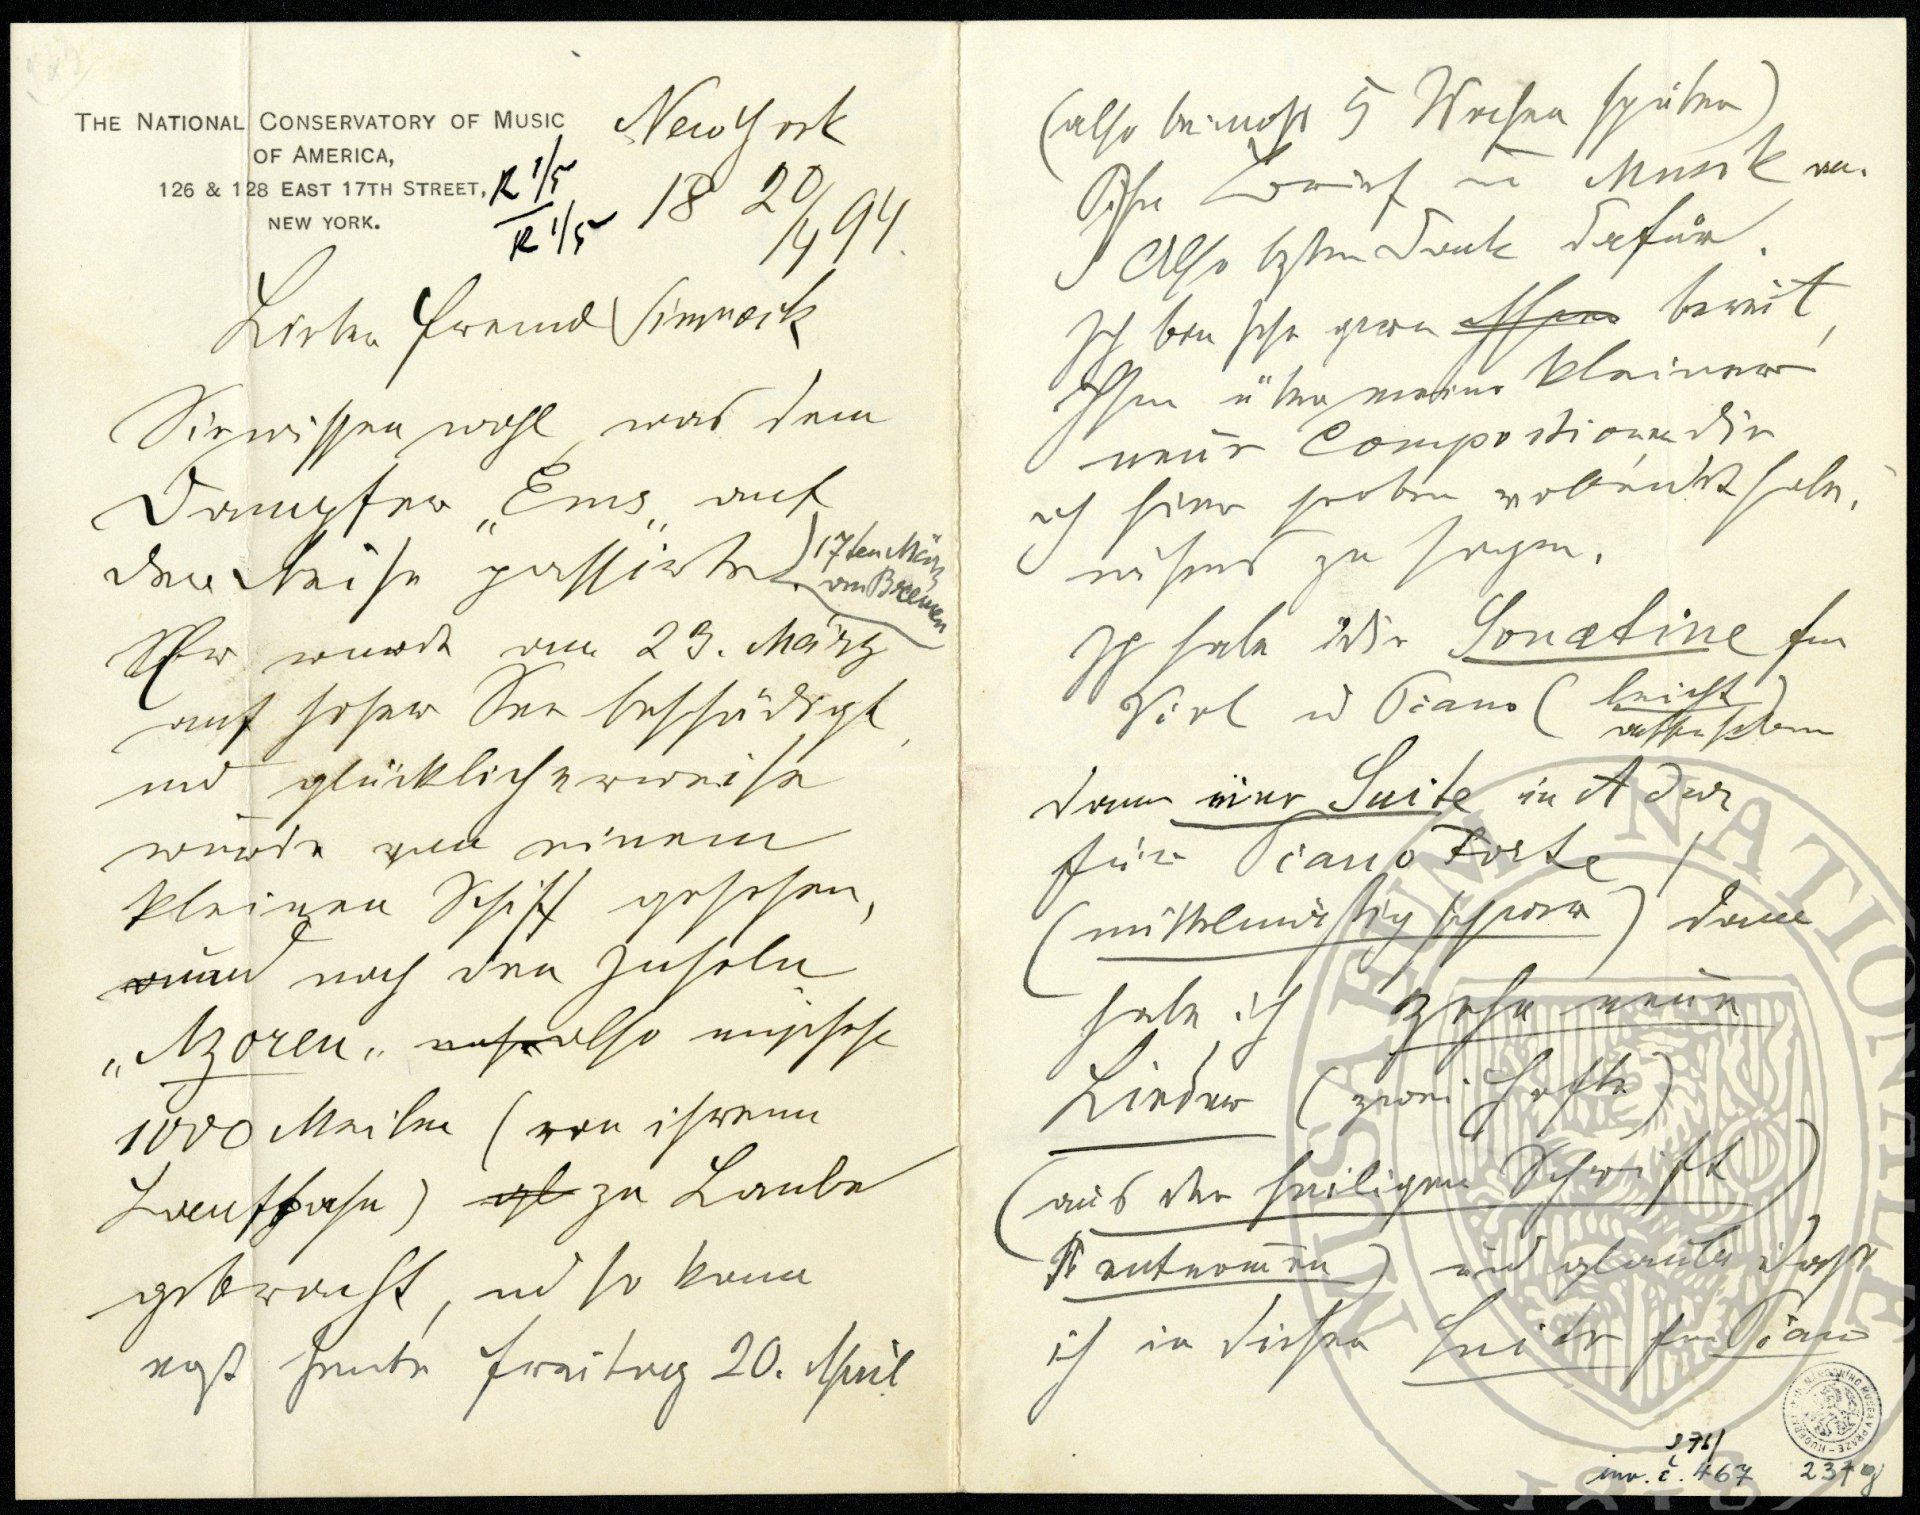 THE NATIONAL CONSERVATORY OF MUSIC
OF AMERICA,
126 & 128 EAST 17TH STREET,
NEW YORK.
R 1/5
R 1/5
New York
18 20/4 94.
Lieber Freund Simrock
Sie wissen wohl, was dem
Dampfer „Ems„ auf
der Reise passirte
17ten März
von Bremen
Er wurde am 23. März
auf hoher See beschädigt,
und glücklicherweise
wurde von einem
kleinen Schiff gesehen,
und nach den Inseln
„Azoren„ also
1000 Meilen (von ihrem
Laufbahn) zu Lande
gebracht, und so kam
erst heute Freitag 20. April
(also beinahe 5 Wochen später)
Ihr Brief u Musik an.
Also besten Dank dafür.
Ich bin sehr gern bereit,
Ihnen über meine kleinen
neue Compositionen die
ich hier soeben vollendet habe,
näheres zu sagen.
Ich habe die Sonatine für
Viol u Piano (leicht
ausführbar
dann eine Suite in A dur
für Piano Forte
(mittelmässig schwer) dann
habe ich zehn neue
Lieder (zwei Hefte)
(aus der heiligen Schrift)
entnommen) und glaube dass
ich in dieser Suite für Piano
MUSAEUM NATIONALE
1818
inv. č. 467